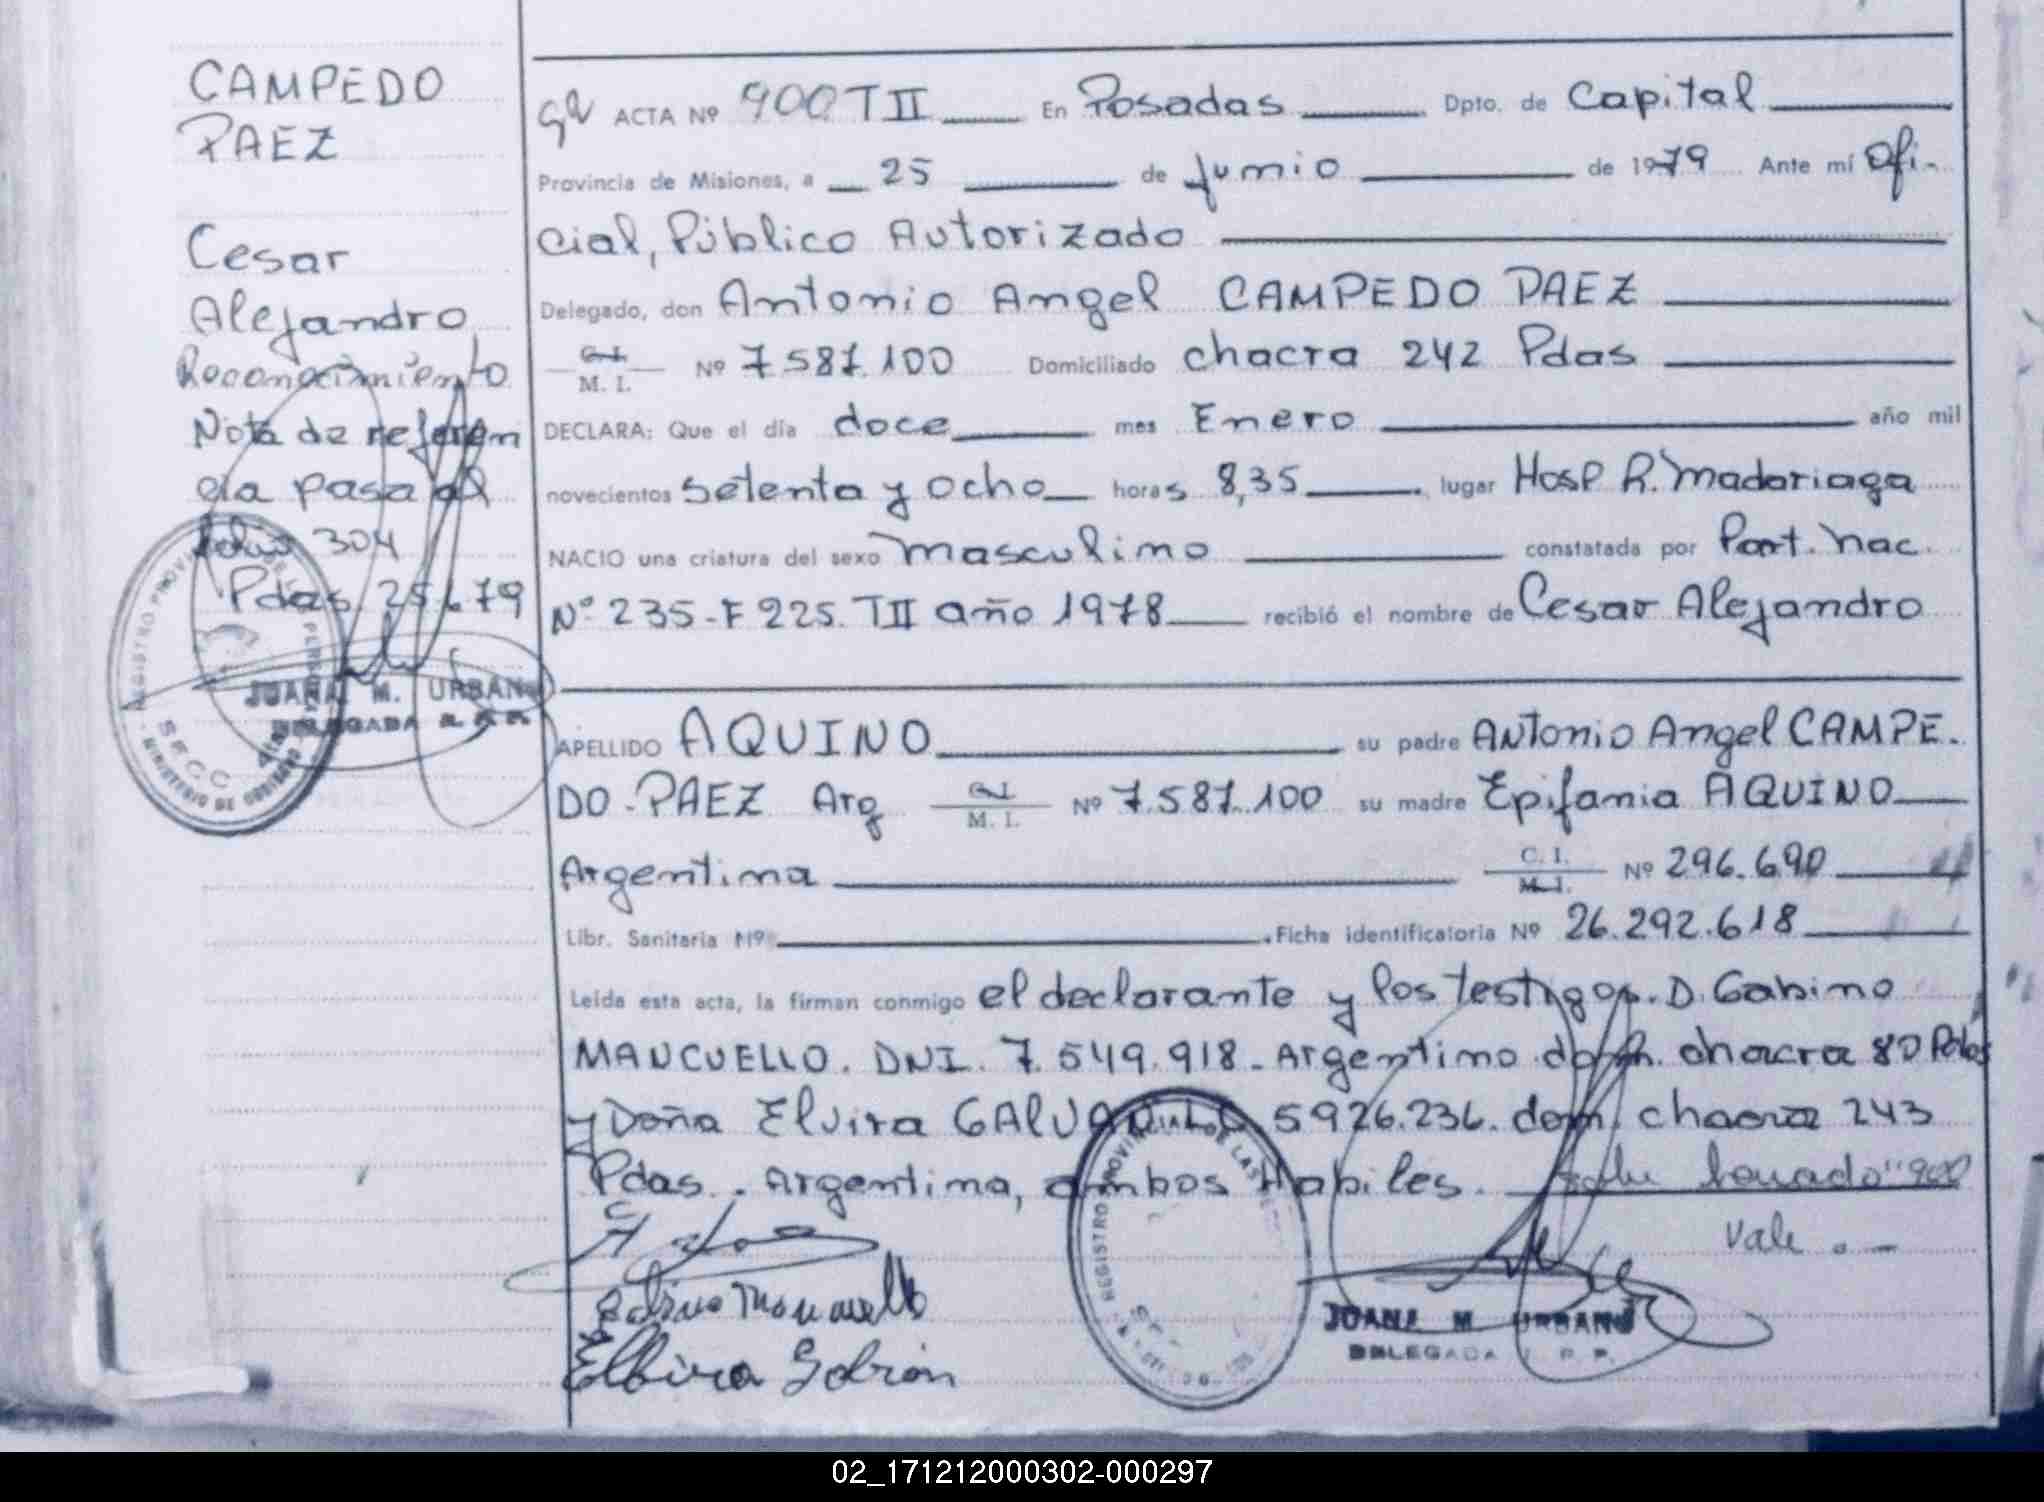 CAMPEDO
PAEZ
Cesar
Alejandro
Reconocimiento
Nota de referen
cia pasa al
folio 304
Pdas. 25 6 79
JUANA M. URBANO
DELEGADA
ACTA Nº 900 T II En Posadas Dpto. de Capital
Provincia de Misiones, a 25 de junio de 1979 Ante mí Ofi-
cial, Público Autorizado
Delegado, don Antonio Angel CAMPEDO PAEZ
C. I.
M. I. Nº 7.587.100 Domiciliado chacra 242 Pdas
DECLARA: Que el día doce mes Enero año mil
novecientos setenta y ocho horas 8,35 lugar Hosp R. Madariaga
NACIO una criatura del sexo masculino constatada por Part. Nac.
Nº 235-F 225. T II año 1978 recibió el nombre de Cesar Alejandro
APELLIDO AQUINO su padre Antonio Angel CAMPE-
DO-PAEZ Arg C. I.
M. I. Nº 7.587.100 su madre Epifania AQUINO
Argentina C. I.
M. I. Nº 296.690
Libr. Sanitaria Nº Ficha identificatoria Nº 26.292.618
Leída esta acta, la firman conmigo el declarante y los testigos. D. Gabino
MANCUELLO. DNI. 7.549.918- Argentino dom. chacra 80 Pdas
y Doña Elvira 5926.236. dom. chacra 243
Pdas. Argentina, ambos Habiles. "900
Vale.-
Elbira
REGISTRO PROVINCIAL DE LAS
JUANA M. URBANO
DELEGADA
02_171212000302-000297